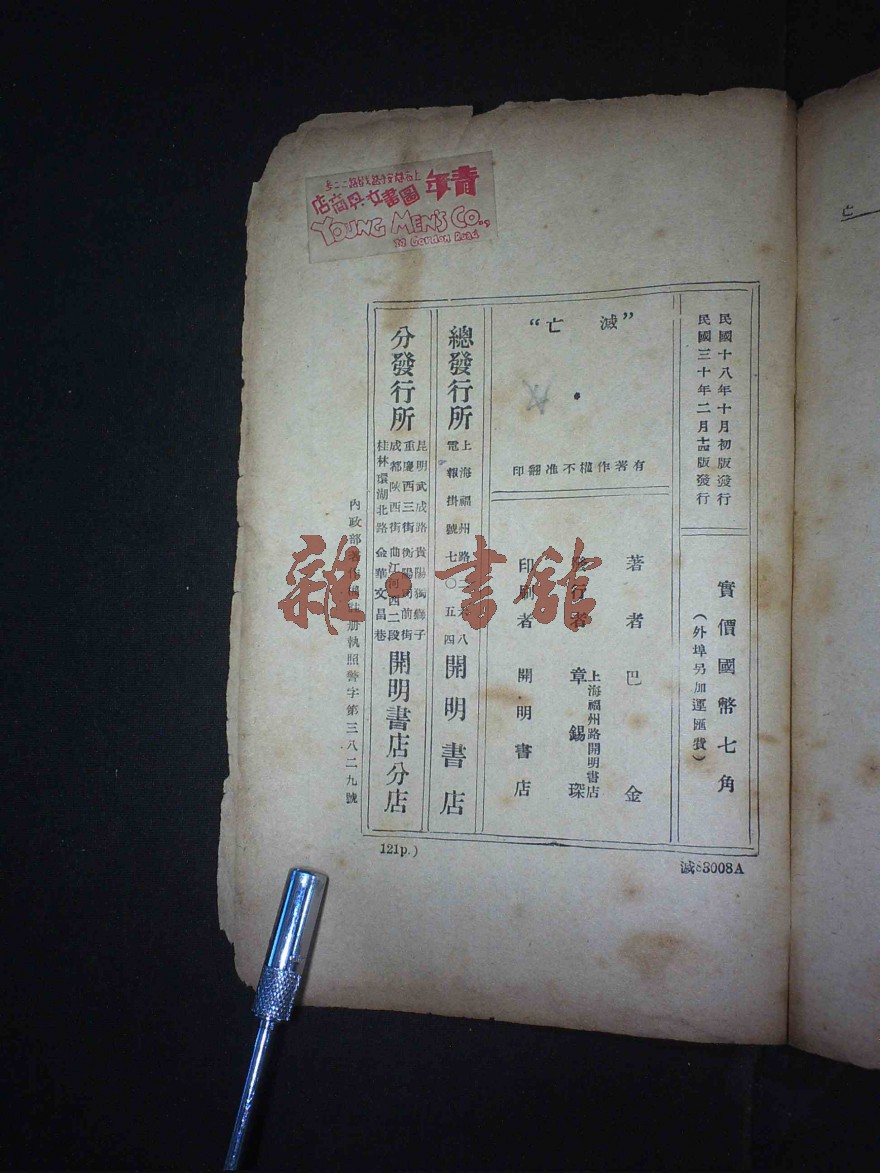 青年圖書文具商店
YOUNG MEN'S CO.,
GORDON ROAD
亡
民國十八年十月初版發行
民國三十年二月十四版發行
實價國幣七角
（外埠另加運匯費）
”滅亡“
有著作權不准翻印
著者 巴金
發行者 上海福州路開明書店
章錫琛
印刷者 開明書店
總發行所 上海福州路二六八
電報掛號七〇五四
開明書店
分發行所
昆明武成路 貴陽獨獅子
重慶西三街 衡陽司前街
成都陝西街 曲江河西二段
桂林環湖北路 金華文昌巷
開明書店分店
內政部著作權註册執照警字第三八二九號
121p.)
滅 3008A
雜·書館